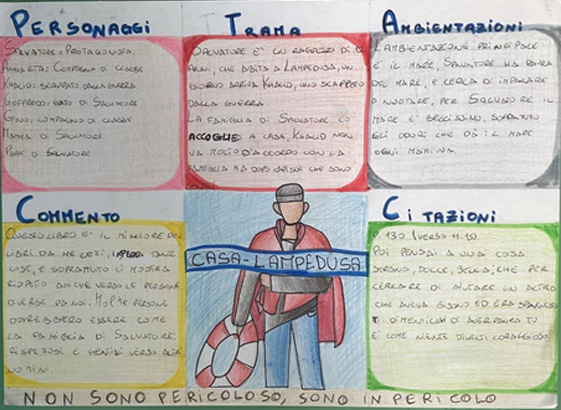 PERSONAGGI
SALVATORE = PROTAGONISTA
ANNARITA= COMPAGNA DI CLASSE
KHALID= SCAPPATO DALLA GUERRA
GOFFREDO= GATTO DI SALVATORE
GINO= COMPAGNO DI CLASSE
MAMMA DI SALVATORE
PAPÀ DI SALVATORE
TRAMA
SALVATORE E' UN RAGAZZO DI
ANNI, CHE ABITA A LAMPEDUSA, UN
GIORNO ARRIVA KHALID, UNO SCAPPATO
DALLA GUERRA.
LA FAMIGLIA DI SALVATORE LO
ACCOGLIE A CASA, KHALID NON
VA MOLTO D'ACCORDO CON LA
FAMIGLIA MA DOPO CHE SONO
AMBIENTAZIONI
L'AMBIENTAZIONE PRINCIPALE
E' IL MARE, SALVATORE HA PAURA
DEL MARE, E CERCA DI IMPARARE
A NUOTARE, PER SALVATORE IL
MARE E' BELLISSIMO, SOPRATUTTO
GLI ODORI CHE DÀ IL MARE
OGNI MATTINA.
COMMENTO
QUESTO LIBRO E' IL MIGLIORE DEI
LIBRI DA ME LETTI, TANTE
COSE, E SOPRATUTTO CI MOSTRA
RISPETTO ANCHE VERSO LE PERSONE
DIVERSE DA NOI. MOLTE PERSONE
DOVREBBERO ESSERE COME
LA FAMIGLIA DI SALVATORE:
RISPETTOSI E GENTILI VERSO ALTRI
UOMINI.
CASA-LAMPEDUSA
CITAZIONI
P. 130 (VERSO 11.15)
POI PENSAI A UNA COSA
STRANO, DOLCE, BELLA: CHE PER
CERCARE DI AIUTARE UN ALTRO
CHE AVEVA BISOGNO ED ERA SPAVENTATO
TI DIMENTICAVI DI AVER PAURA TU
E COME NIENTE DIVENTI CORAGGIOSO
NON SONO PERICOLOSO, SONO IN PERICOLO